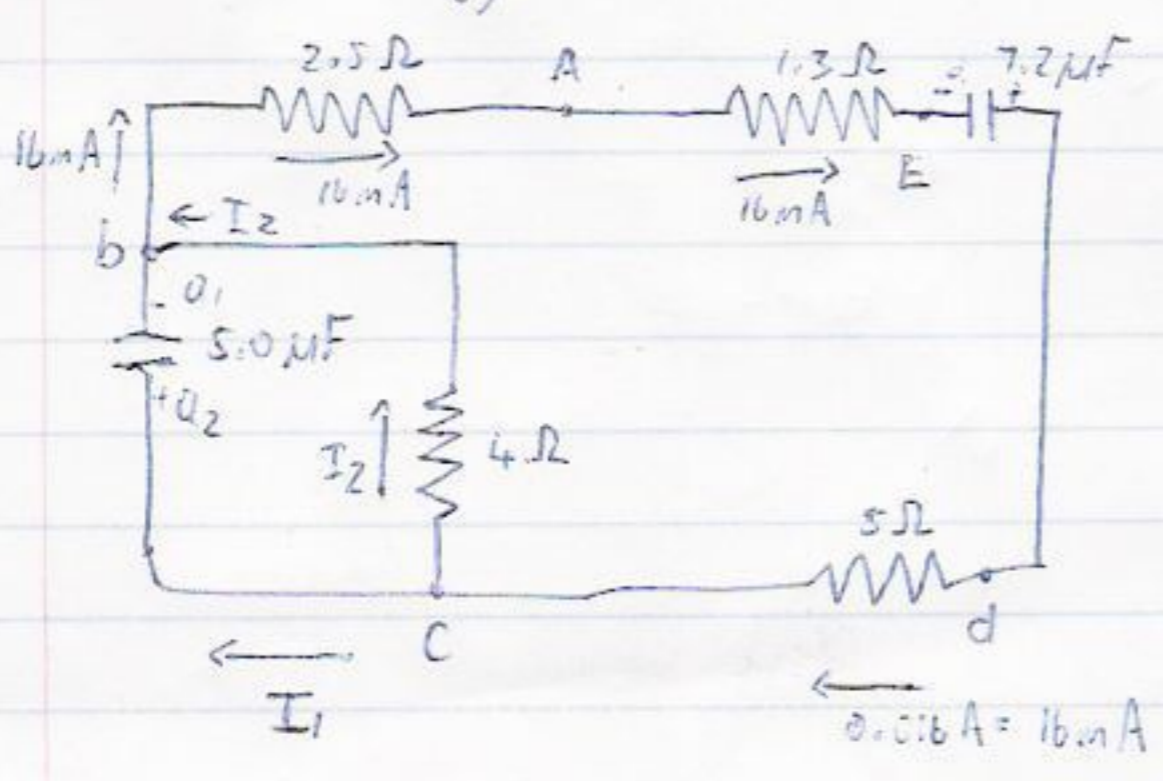 2.5Ω
A
1.3Ω
7.2μF
-
+
16mA
16mA
16mA
E
I2
b
-
5.0μF
+Q2
I2
4Ω
5Ω
C
d
I1
0.016A = 16mA